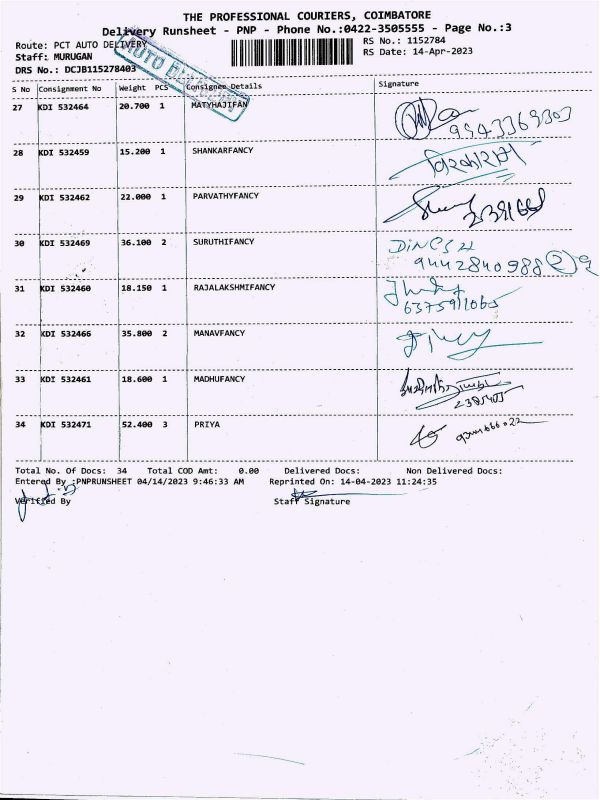 THE PROFESSIONAL COURIERS, COIMBATORE
Delivery Runsheet - PNP - Phone No.:0422-3505555 - Page No.:3
Route: PCT AUTO DELIVERY
RS No.: 1152784
Staff: MURUGAN
RS Date: 14-Apr-2023
DRS No.: DCJB115278403
AUTO DELIVERY
S No Consignment No Weight PCS Consignee Details Signature
27 KDI 532464 20.700 1 MATYHAJIFAN
9943369303
28 KDI 532459 15.200 1 SHANKARFANCY
29 KDI 532462 22.000 1 PARVATHYFANCY
30 KDI 532469 36.100 2 SURUTHIFANCY
9442840988 2
31 KDI 532460 18.150 1 RAJALAKSHMIFANCY
6375911065
32 KDI 532466 35.800 2 MANAVFANCY
33 KDI 532461 18.600 1 MADHUFANCY
34 KDI 532471 52.400 3 PRIYA
Total No. Of Docs: 34 Total COD Amt: 0.00 Delivered Docs: Non Delivered Docs:
Entered By :PNPRUNSHEET 04/14/2023 9:46:33 AM Reprinted On: 14-04-2023 11:24:35
Verified By Staff Signature